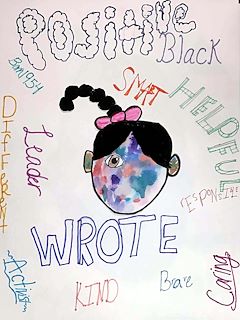 POSiTiVE
Black
Born 1954
SMART
HELPFUL
DIFFERENT
Leader
RESPONSIBLE
WROTE
Activist
KIND
Brave
Caring